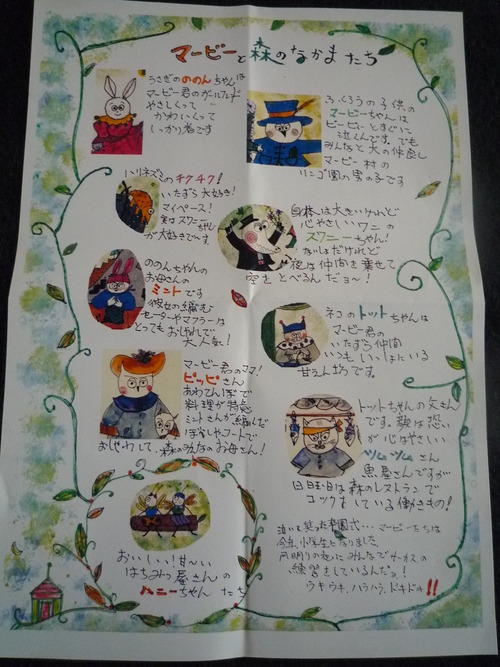 マービーと森のなかまたち
うさぎのののんちゃんは
マービー君のガールフレンド
やさしくって
かわいくって
しっかり者です
ふくろうの子供の
マービーちゃんは
ピーピーとすぐに
泣くんです。でも
みんなと大の仲良し
マービー村の
リンゴ園の男の子です
ハリネズミのチクチク!
いたずら大好き!
マイペース!
実はスワニーちゃん
が大好きです
自体は大きいけれど
心やさしいワニの
スワニーちゃん!
ないしょだけれど
夜は仲間を乗せて
空をとべるんだョ〜!
ののんちゃんの
お母さんの
ミントです
彼女の編む
セーターやマフラーは
とってもおしゃれで
大人気!
ネコのトットちゃんは
マービー君の
いたずら仲間
いつもいっしょにいる
甘えん坊です。
マービー君のママ!
ピッピさん
あわてんぼで
料理が特意
ミントさんが編んだ
ぼうしやコートで
おしゃれして、森のみんなのお母さん!
トットちゃんの父さん
です。顔は恐い
が心はやさしい
ツムツムさん
魚屋さんですが
日曜日は森のレストランで
コックもしている働きもの!
おいしい!甘〜い
はちみつ屋さんの
ハニーちゃんたち
泣いて笑った卒園式…マービーたちは
今年小学生となりました
月明りの夜にみんなでサーカスの
練習をしているんだョ!
ウキウキ、ハラハラ、ドキドキ!!